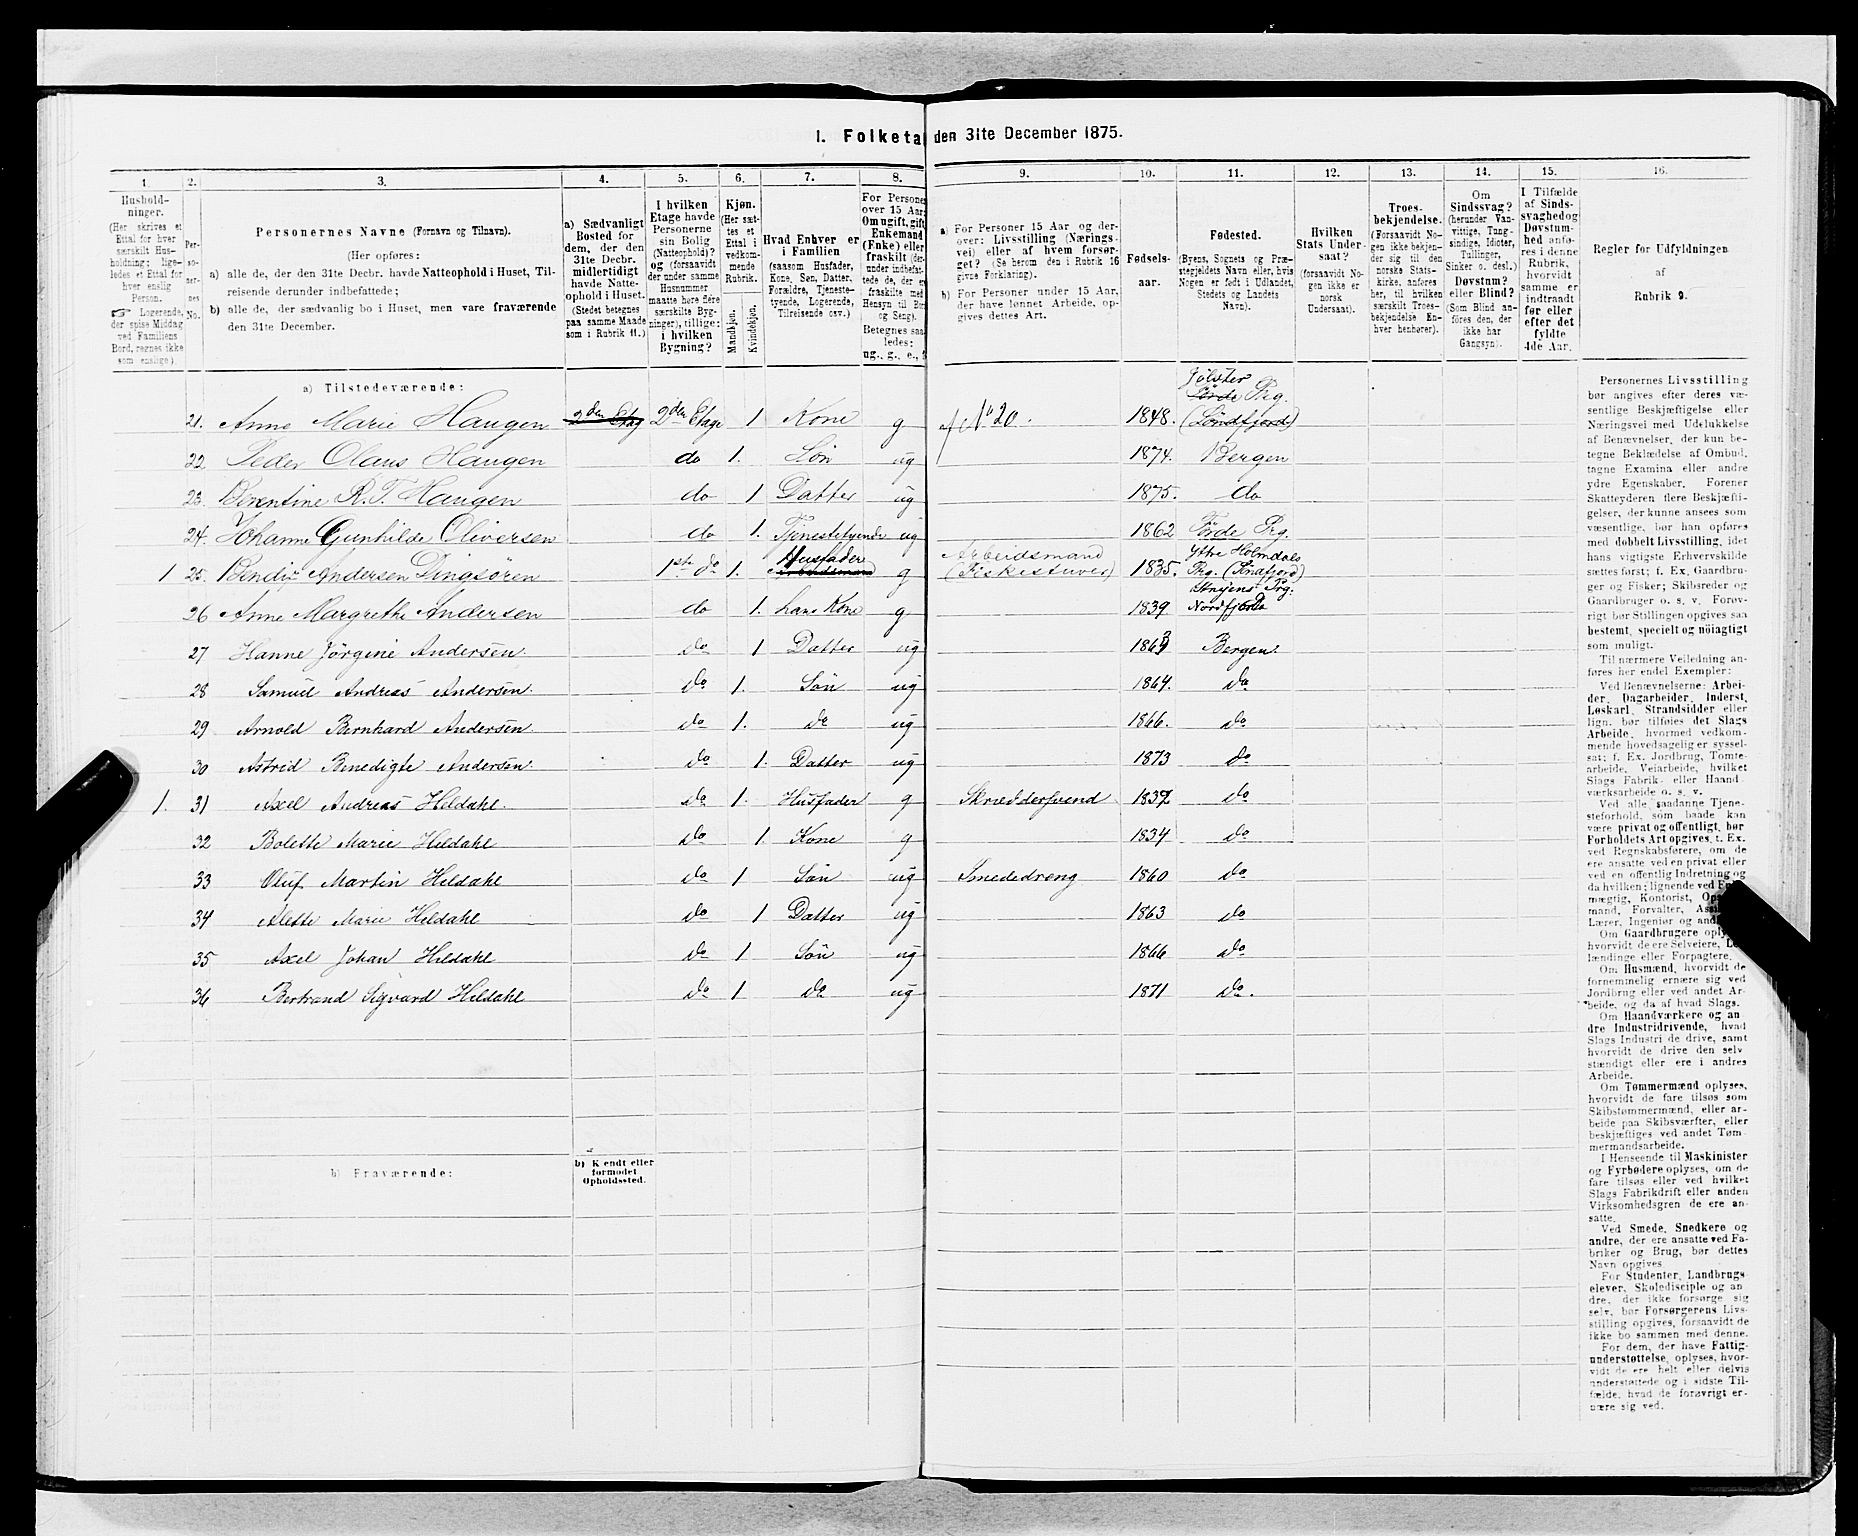 I. Folketa den 31te December 1875.
1. 2. 3. 4. 5. 6. 7. 8. 9. 10. 11. 12. 13. 14. 15. 16.
Hushold-
ninger.
(Her skrives et
Ettal for hver
særskilt Hus-
holdning; lige-
ledes et Ettal for
hver enslig
Person.
☞ Logerende,
der spise Middag
ved Familiens
Bord, regnes ikke
som enslige).
Per-
so-
ner-
nes
No.
Personernes Navne (Fornavn og Tilnavn).
(Her opføres:
a) alle de, der den 31te Decbr. havde Natteophold i Huset, Til-
reisende derunder indbefattede;
b) alle de, der sædvanlig bo i Huset, men vare fraværende
den 31te December.
a) Sædvanligt
Bosted for
dem, der den
31te Decbr.
midlertidigt
havde Natte-
ophold i Huset.
(Stedet betegnes
paa samme Maade
som i Rubrik 11.)
I hvilken
Etage havde
Personerne
sin Bolig
(Natteophold)?
og (forsaavidt
der under samme
Husnummer
maatte høre flere
særskilte Byg-
nger), tillige:
i hvilken
Bygning?
Kjøn.
(Her sæt-
tes et
Ettal i
vedkom-
mende
Rubrik.
Mandkjøn.
Kvindekjøn.
Hvad Enhver er
i Familien
(saasom Husfader,
Kone, Søn, Datter,
Forældre, Tjeneste-
tyende, Logerende,
Tilreisende osv.)
For Persone
over 15 Aar;
Om ugift, gift
Enkemand
(Enke) eller
fraskilt (der-
under indbefat-
tede de, der e
fraskilte med
Hensyn til Bo
og Seng).
Betegnes saa
ledes:
ug., g., e.,
a) For Personer 15 Aar og der-
over: Livsstilling (Nærings-
vei) eller af hvem forsør-
get? (Se herom den i Rubrik 16
givne Forklaring).
b) For Personer under 15 Aar,
der have lønnet Arbeide, op-
gives dettes Art.
Fødsels-
aar.
Fødested.
(Byens, Sognets og Præ-
stegjeldets Navn eller, hvis
Nogen er født i Udlandet,
Stedets og Landets
Navn).
Hvilken
Stats Under-
saat?
(forsaavidt No-
gen ikke er
norsk
Undersaat).
Troes-
bekjendelse.
(Forsaavidt No-
gen ikke bekjen-
der sig til den
norske Stats-
kirke, anføres
her, til hvilken
særskilt Troes-
bekjendelse En-
hver henhører).
Om
Sindssvag?
(herunder Van-
vittige, Tung-
sindige, Idioter,
Tullinger,
Sinker o. desl.)
Døvstum?
eller Blind?
(Som Blind an-
føres den, der
ikke har
Gangsyn).
I Tilfælde
af Sinds-
svaghed og
Døvstum-
hed anfø-
res i denne
Rubrik,
hvorvidt
samme er
indtraadt
før eller
efter det
fyldte
4de Aar.
Regler for Udfyldningen
af
Rubrik 9.
a) Tilstedeværende:
Jølster
21. Anne Marie Haugen 2den Etag 2den Etage 1 Kone g af No 20. 1848. Førde Prg. (Søndfjord)
22. Peder Olaus Haugen do 1. Søn ug 1874. Bergen
23. Berentine R. T. Haugen do 1 Datter ug 1875. do
24. Johanne Gunhilde Oliversen do 1. Tjenestetyende ug 1862 Førde Prg.
1 25. Bendix Andersen Dingsøren 1ste do 1. Husfader g Arbeidsmand (Fiskestuver) 1835. Ytre Holmdals Prg. (Søndfjord)
26 Anne Margrethe Andersen do 1. hans Kone g 1839 Strÿens Prg. Nordfjord
27 Hanne Jørgine Andersen. do 1 Datter ug 1863 Bergen.
28 Samuel Andreas Andersen. do 1. Søn ug 1864. do
29 Arnold Bernhard Andersen. do 1. do ug 1866. do
30 Astrid Benedigte Andersen. do 1. Datter ug 1873 do
1. 31 Axel Andreas Hildahl. do 1. Husfader g Skræddersvend 1832 do
32 Bolette Marie Hildahl do 1. Kone g 1834 do
33 Oluf Martin Hildahl do 1 Søn ug Smededreng 1860 do
34 Alette Marie Hildahl do 1 Datter ug 1863 do
35 Axel Johan Hildahl do 1 Søn ug 1866 do
36 Bertrand Sigvard Hildahl do 1 do ug 1871 do.
b) Fraværende:
b) Kjendt eller
formodet
Opholdssted.
Personernes Livsstilling
bør angives efter deres væ-
sentlige Beskjæftigelse eller
Næringsvei med Udelukkelse
af Benævnelser, der kun be-
tegne Beklædelse af Ombud,
tagne Examina eller andre
ydre Egenskaber. Forener
Skatteyderen flere Beskjæfti-
gelser, der kunne ansees som
væsentlige, bør han opføres
med dobbelt Livsstilling, idet
hans vigtigste Erhvervskilde
sættes først; f. Ex. Gaardbru-
ger og Fisker; Skibsreder og
Gaardbruger o. s. v. Forøv-
rigt bør Stillingen opgives saa
bestemt, specielt og nöiagtigt
som muligt.
Til nærmere Veiledning an-
føres her endel Exempler:
Ved Benævnelserne: Arbei-
der, Dagarbeider, Inderst,
Løskarl, Strandsidder eller
lign. bør tilføies det Slags
Arbeide, hvormed vedkom-
mende hovedsagelig er syssel-
sat; f. Ex. Jordbrug, Tomte-
arbeide, Veiarbeide, hvilket
Slags Fabrik- eller Haand-
værksarbeide o. s. v.
Ved alle saadanne Tjene-
steforhold, som baade kan
være privat og offentligt, bør
Forholdets Art opgives, t. Ex.
ved Regnskabsførere, om de
ere ansatte ved en privat eller
ved en offentlig Indretning og
da hvilken; lignende ved
mægtig, Kontorist,
mand, Forvalter,
Lærer, Ingeniør og
Om Gaardbrugere
hvorvidt de ere Selveiere,
lændinge eller Forpagtere.
Om Husmænd, hvorvidt de
fornemmelig ernære sig ved
Jordbrug eller ved andet Ar-
beide, og da af hvad Slags.
Om Haandværkere og an-
dre Industridrivende, hvad
Slags Industri de drive, samt
hvorvidt de drive den selv-
stændigt eller ere i andres
Arbeide.
Om Tømmermænd oplyses,
hvorvidt de fare tilsøs som
Skibstømmermænd, eller ar-
beide paa Skibsværfter, eller
beskjæftiges ved andet Tøm-
mermandsarbeide.
I Henseende til Maskinister
og Fyrbødere oplyses, om de
fare tilsøs eller ved hvilket
Slags Fabrikdrift eller anden
Virksomhedsgren de ere an-
satte.
Ved Smede, Snedkere og
andre, der ere ansatte ved Fa-
briker og Brug, bør dettes
Navn opgives
For Studenter, Landbrugs-
elever, Skoledisciple og an-
dre, der ikke forsørge sig
selv, bør Forsørgerens Livs-
stilling opgives, forsaavidt de
ikke bo sammen med denne.
For dem, der have Fattig-
understøttelse, oplyses, hvor-
vidt de ere helt eller delvis
understøttede og i sidste Til-
fælde, hvad de forøvrigt er-
nære sig ved.